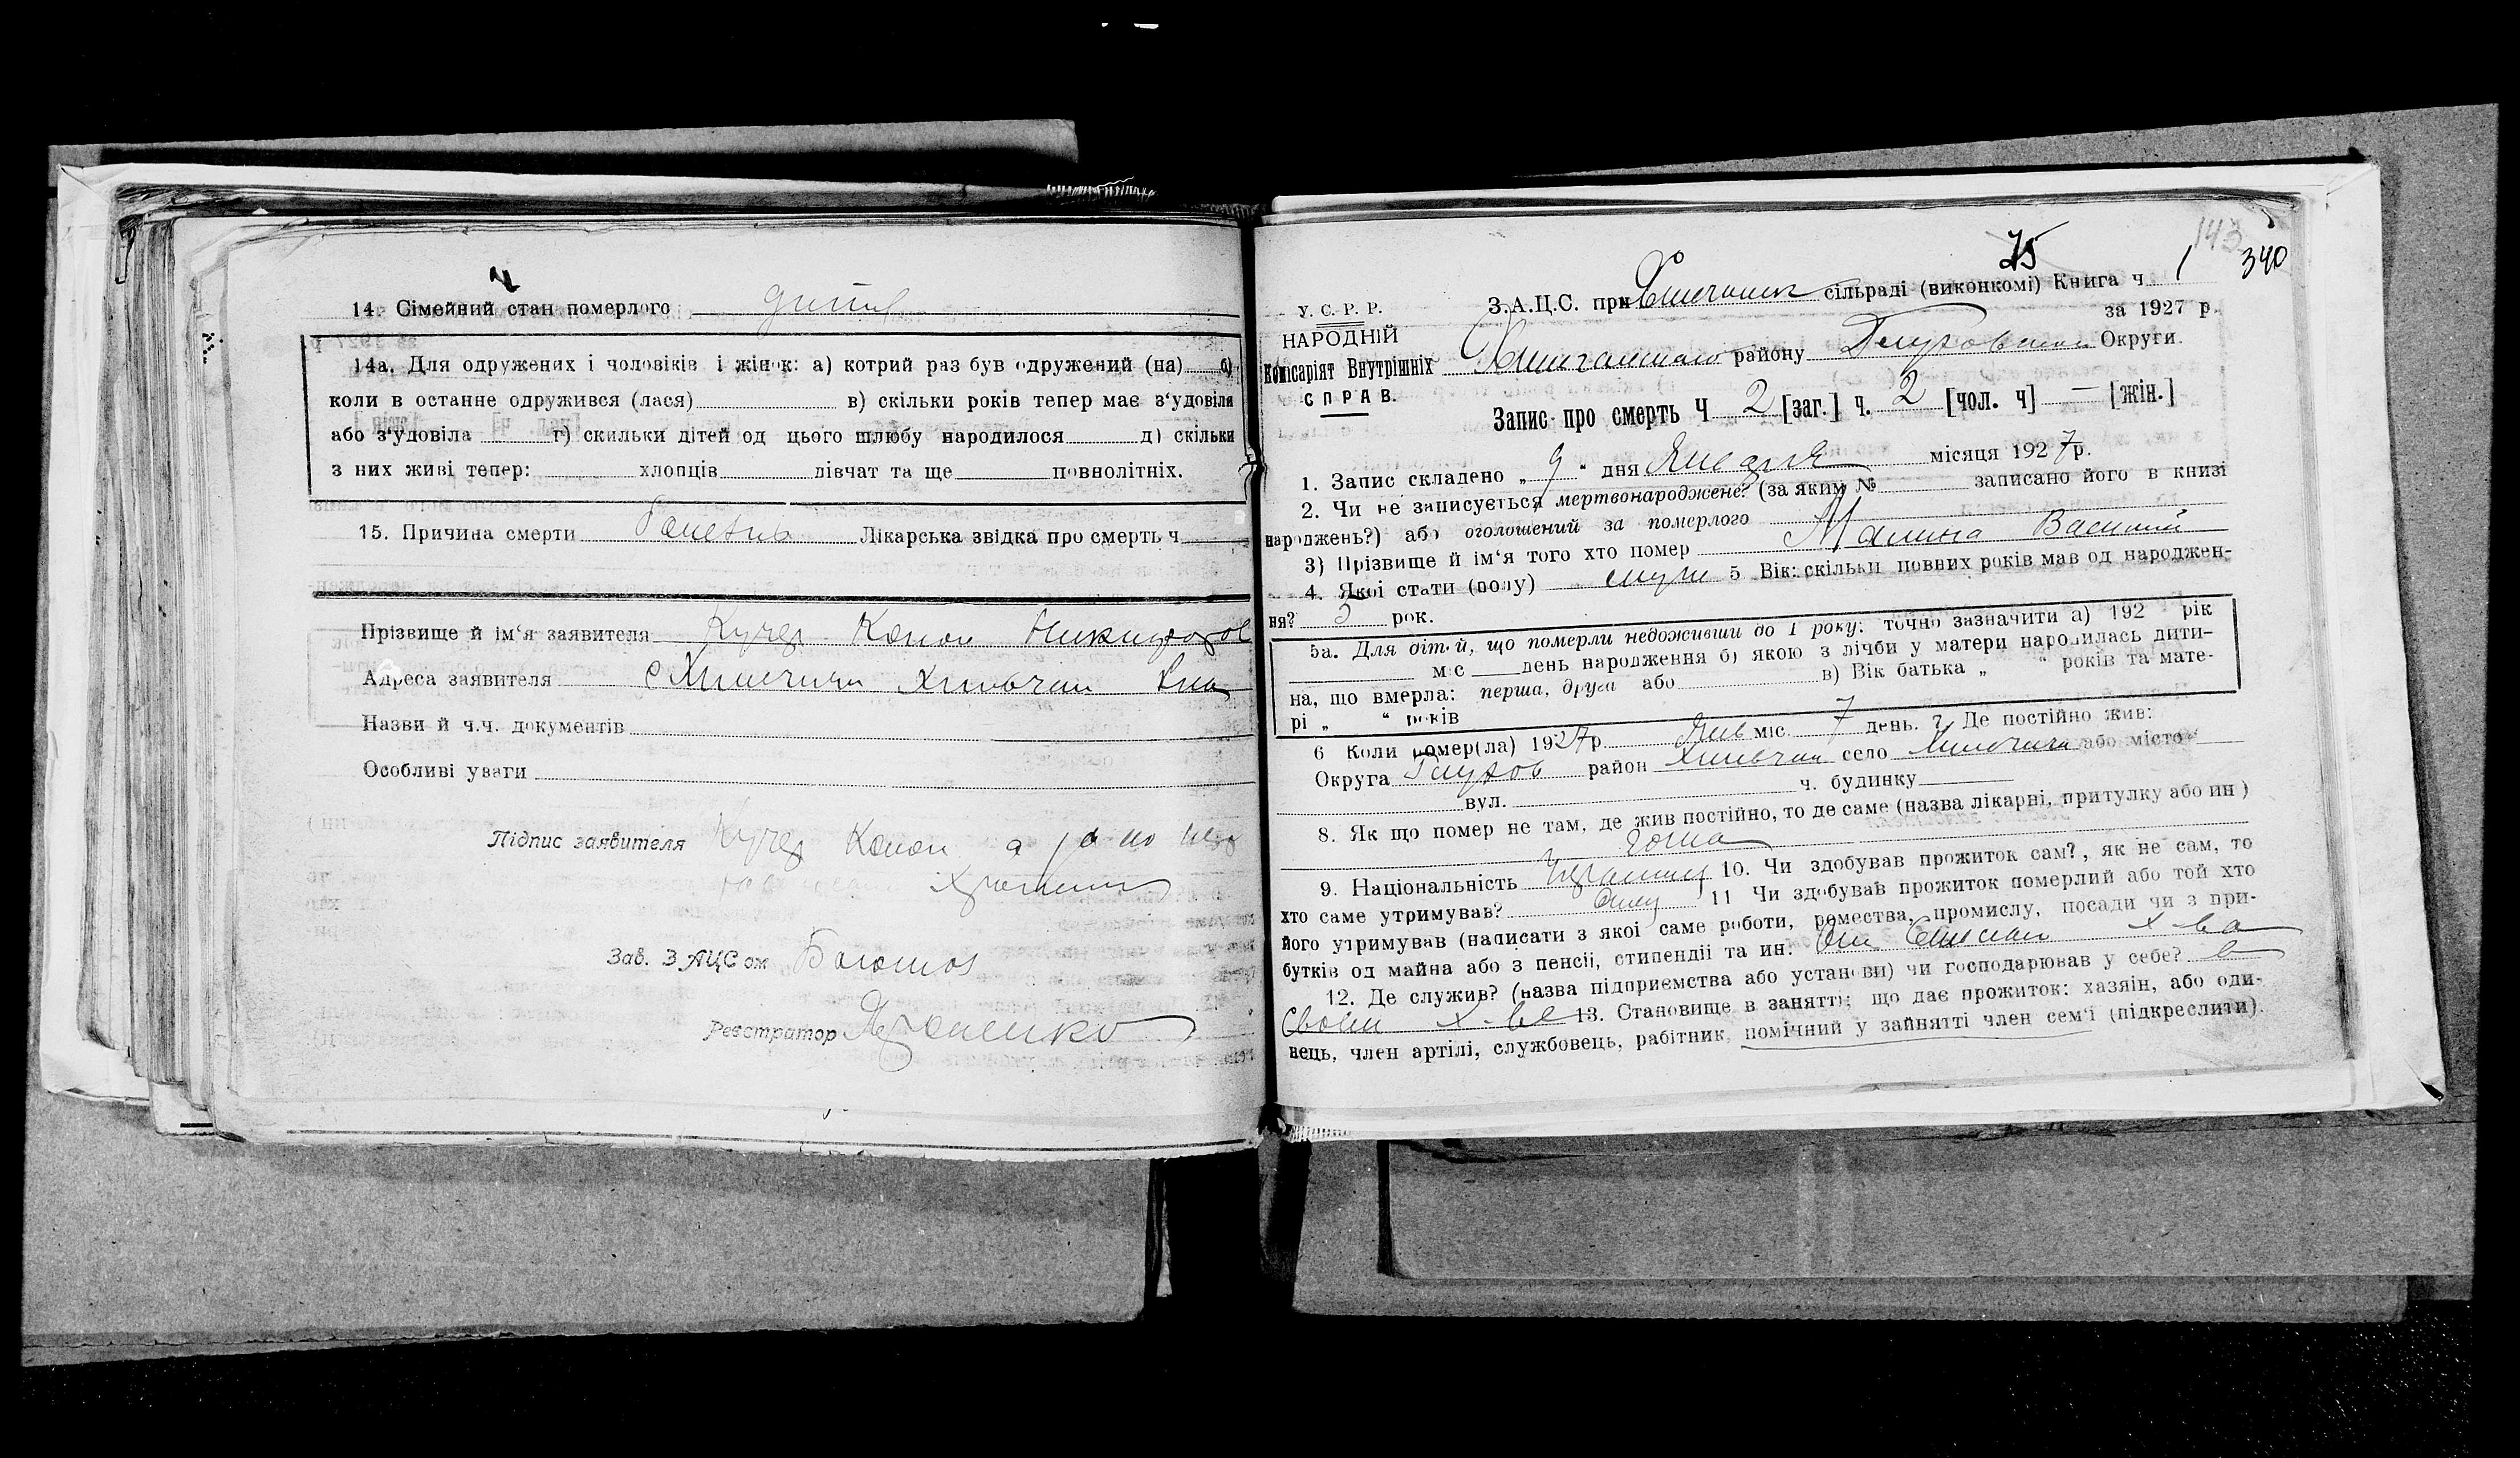 14. Сімейний стан померлого
14а. Для одружених і чоловіків і жінок: а) котрий раз був одружений (на) б)
коли в останне одружився (лася) в) скільки років тепер має з'удовіли
або з'удовіла г) скильки дітей од цього шлюбу народилося д) скільки
з них живі тепер: хлопців дівчат та ще повнолітніх.
15. Причина смерти Лікарська звідка про смерть ч
Прізвище й ім'я заявителя Кучер Конон Никифоров
Адреса заявителя с
Назви й ч.ч. документів
Особливі уваги
Підпис заявителя Кучер Конон а
Зав. ЗАЦСом
Реєстратор
143
75
340
З.А.Ц.С. при сільраді (виконкомі) Книга ч 1
за 1927 р.
У. С. Р. Р.
НАРОДНІЙ
Комісаріят Внутрішніх
СПРАВ.
району Глуховской Округи.
Запис про смерть Ч 2 [заг.] ч. 2 [чол. ч] — [жін.]
1. Запис складено „ 9 “ дня Января місяця 1927 р.
2. Чи не записується мертвонароджене? (за яким № записано його в книзі
народжень?) або оголошений за померлого
3) Прізвище й ім'я того хто помер Малина Василий
4. Якої стати (полу) 5 Вік: скільки повних років мав од народжен-
ня? 5 рок.
5а. Для дітей, що померли недоживши до 1 року: точно зазначити а) 192 рік
міс день народження б) якою з лічби у матери народилась дити-
на, що вмерла: перша, друга або в) Вік батька „ “ років та мате-
рі „ “ років
6 Коли помер(ла) 1927 р Янв міс. 7 день. 7 Де постійно жив:
Округа Глухов район село або місто
вул. ч. будинку
8. Як що помер не там, де жив постійно, то де саме (назва лікарні, притулку або ин )
дома
9. Національність 10. Чи здобував прожиток сам?, як не сам, то
хто саме утримував? Отец 11 Чи здобував прожиток померлий або той хто
його утримував (написати з якої саме роботи, ремества, промислу, посади чи з при-
бутків од майна або з пенсії, стипендії та ин. х-ва
12. Де служив? (назва підприємства або установи) чи господарював у себе? в
своем х-ве 13. Становище в занятті: що дає прожиток: хазяін, або оди-
нець, член артілі, службовець, рабітник, помічний у зайнятті член сем'ї (підкреслити)